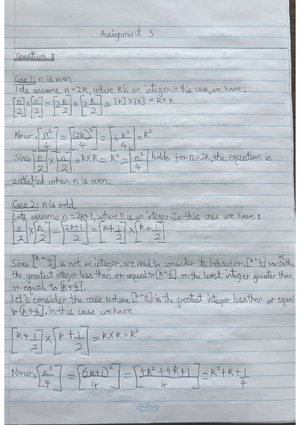 Assignment 3
Question 1
Case 1: n is even
Lets assume n=2k, where k is an integer. In this case, we have:
[n/2]×[n/2] = [2k/2]×[2k/2] = [k]×[k] = k×k
Now, [n²/4] = [(2k)²/4] = [4k²/4] = k²
Since [n/2]×[n/2] = k×k = k² = [n²/4] holds for n=2k, the equation is
satisfied when n is even.
Case 2: n is odd
Lets assume n=2k+1, where k is an integer. In this case we have:
[n/2]×[n/2] = [2k+1/2] = [k+1/2]×[k+1/2]
Since [k+1/2] is not an integer, we need to consider its behavior, [k+1/2] can be
the greatest integer less than or equal to [k+1/2] or the least integer greater than
or equal to [k+1/2].
Let's consider the case where [k+1/2] is the greatest integer less than or equal
to [k+1/2]. In this case we have
[k+1/2]×[k+1/2] = k×k = k²
Now, [n²/4] = [(2k+1)²/4] = [4k²+4k+1/4] = k²+k+1/4